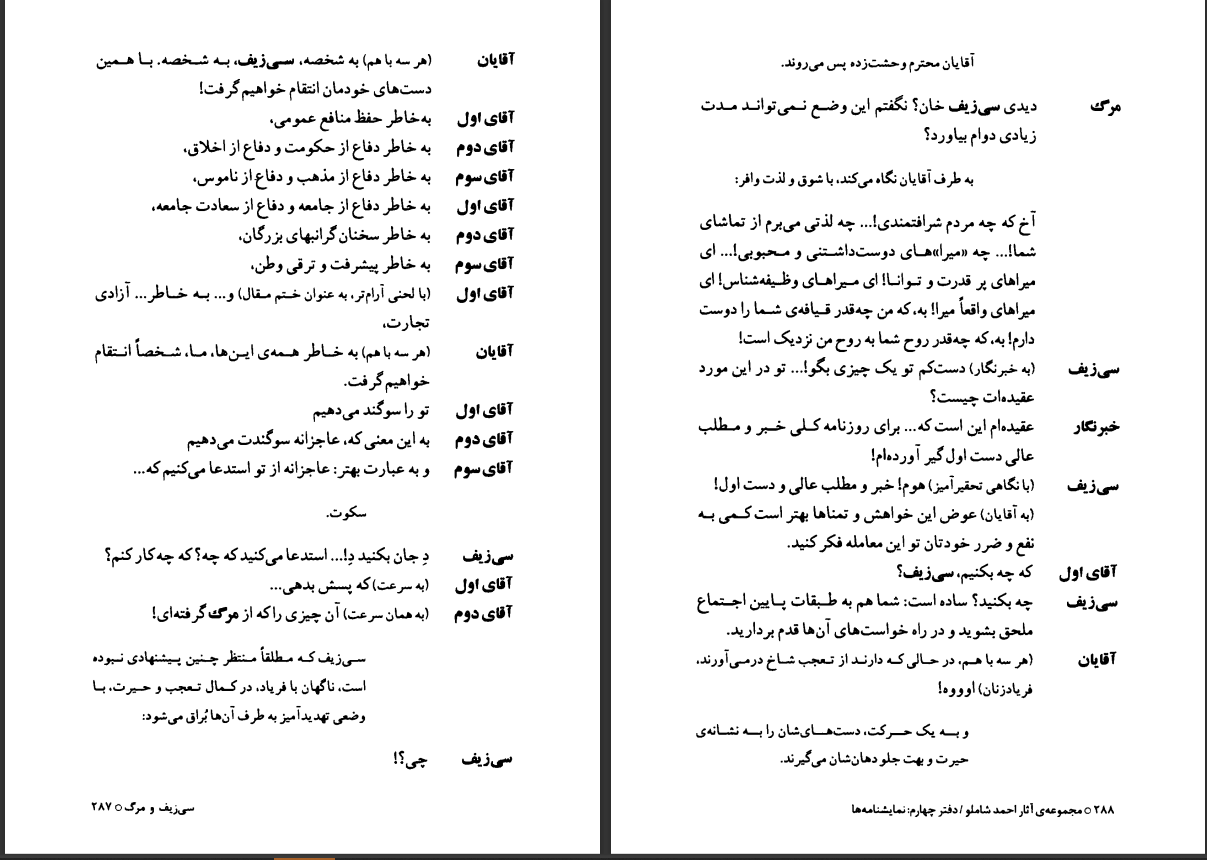 آقایان (هر سه با هم) به شخصه، سی‌زیف، به شخصه. با همین
دست‌های خودمان انتقام خواهیم گرفت!
آقای اول به‌خاطر حفظ منافع عمومی،
آقای دوم به خاطر دفاع از حکومت و دفاع از اخلاق،
آقای سوم به خاطر دفاع از مذهب و دفاع از ناموس،
آقای اول به خاطر دفاع از جامعه و دفاع از سعادت جامعه،
آقای دوم به خاطر سخنان گرانبهای بزرگان،
آقای سوم به خاطر پیشرفت و ترقی وطن،
آقای اول (با لحنی آرام‌تر، به عنوان ختم مقال) و... به خاطر... آزادی
تجارت،
آقایان (هر سه با هم) به خاطر همه‌ی این‌ها، ما، شخصاً انتقام
خواهیم گرفت.
آقای اول تو را سوگند می‌دهیم
آقای دوم به این معنی که، عاجزانه سوگندت می‌دهیم
آقای سوم و به عبارت بهتر: عاجزانه از تو استدعا می‌کنیم که...
سکوت.
سی‌زیف دِ جان بکنید دِ!... استدعا می‌کنید که چه؟ که چه‌کار کنم؟
آقای اول (به سرعت) که پسش بدهی...
آقای دوم (به همان سرعت) آن چیزی را که از مرگ گرفته‌ای!
سی‌زیف که مطلقاً منتظر چنین پیشنهادی نبوده
است، ناگهان با فریاد، در کمال تعجب و حیرت، با
وضعی تهدیدآمیز به طرف آن‌ها بُراق می‌شود:
سی‌زیف چی؟!
سی‌زیف و مرگ ○ ۲۸۷
آقایان محترم وحشت‌زده پس می‌روند.
مرگ دیدی سی‌زیف خان؟ نگفتم این وضع نمی‌تواند مدت
زیادی دوام بیاورد؟
به طرف آقایان نگاه می‌کند، با شوق و لذت وافر:
آخ که چه مردم شرافتمندی!... چه لذتی می‌برم از تماشای
شما!... چه «میرا»های دوست‌داشتنی و محبوبی!... ای
میراهای پر قدرت و توانا! ای میراهای وظیفه‌شناس! ای
میراهای واقعاً میرا! به، که من چه‌قدر قیافه‌ی شما را دوست
دارم! به، که چه‌قدر روح شما به روح من نزدیک است!
سی‌زیف (به خبرنگار) دست‌کم تو یک چیزی بگو!... تو در این مورد
عقیده‌ات چیست؟
خبرنگار عقیده‌ام این است که... برای روزنامه کلی خبر و مطلب
عالی دست اول گیر آورده‌ام!
سی‌زیف (با نگاهی تحقیرآمیز) هوم! خبر و مطلب عالی و دست اول!
(به آقایان) عوض این خواهش و تمناها بهتر است کمی به
نفع و ضرر خودتان تو این معامله فکر کنید.
آقای اول که چه بکنیم، سی‌زیف؟
سی‌زیف چه بکنید؟ ساده است: شما هم به طبقات پایین اجتماع
ملحق بشوید و در راه خواست‌های آن‌ها قدم بردارید.
آقایان (هر سه با هم، در حالی که دارند از تعجب شاخ درمی‌آورند،
فریادزنان) اوووه!
و به یک حرکت، دست‌های‌شان را به نشانه‌ی
حیرت و بهت جلو دهان‌شان می‌گیرند.
۲۸۸ ○ مجموعه‌ی آثار احمد شاملو / دفتر چهارم: نمایشنامه‌ها